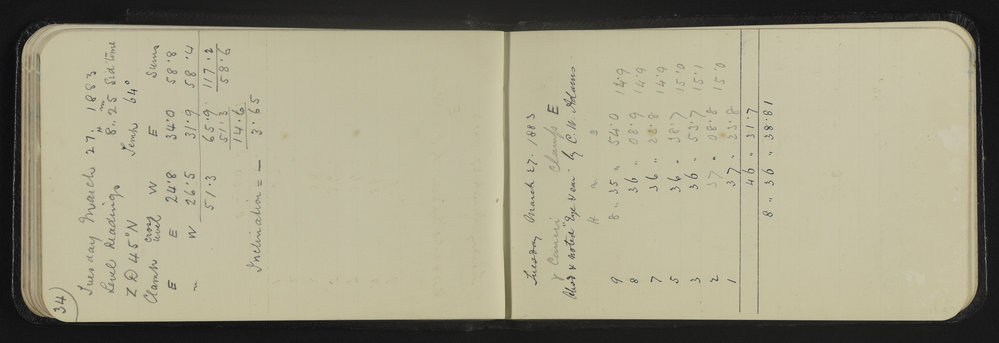 34
Tuesday March 27. 1883
Level Readings 8h 25m Sid Time
Z D 45° N Temp 64°
Clamp Cross level W E Sums
E E 24.8 34.0 58.8
" W 26.5 31.9 58.4
51.3 65.9 117.2
51.3 58.6
14.6
Inclination = — 3.65
Tuesday March 27. 1883
γ Cancri Clamp E
Obsd & noted "Eye & ear" by C. W. Adams
H m s
9 8 " 35 " 54.0 14.9
8 36 " 08.9 14.9
7 36 " 23.8 14.9
5 36 " 38.7 15.0
3 36 " 53.7 15.1
2 37 " 08.8 15.0
1 37 " 23.8
46 " 31.7
8 " 36 " 38.81